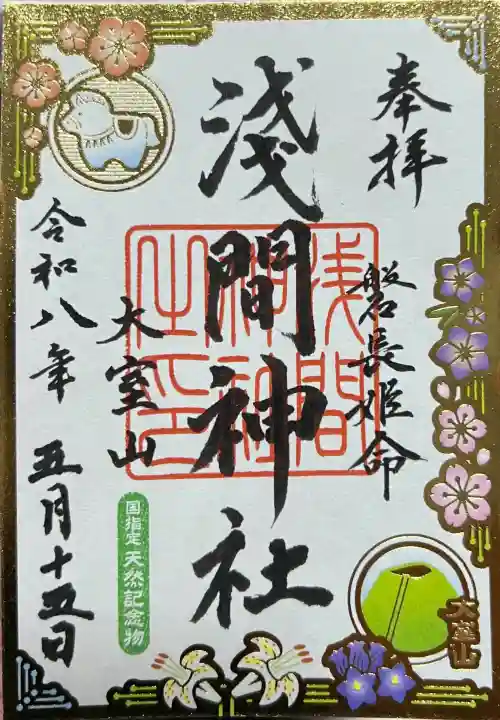 奉拝
磐長姫命
淺間神社
浅間神社之印
大室山
国指定 天然記念物
令和八年 五月十五日
大室山